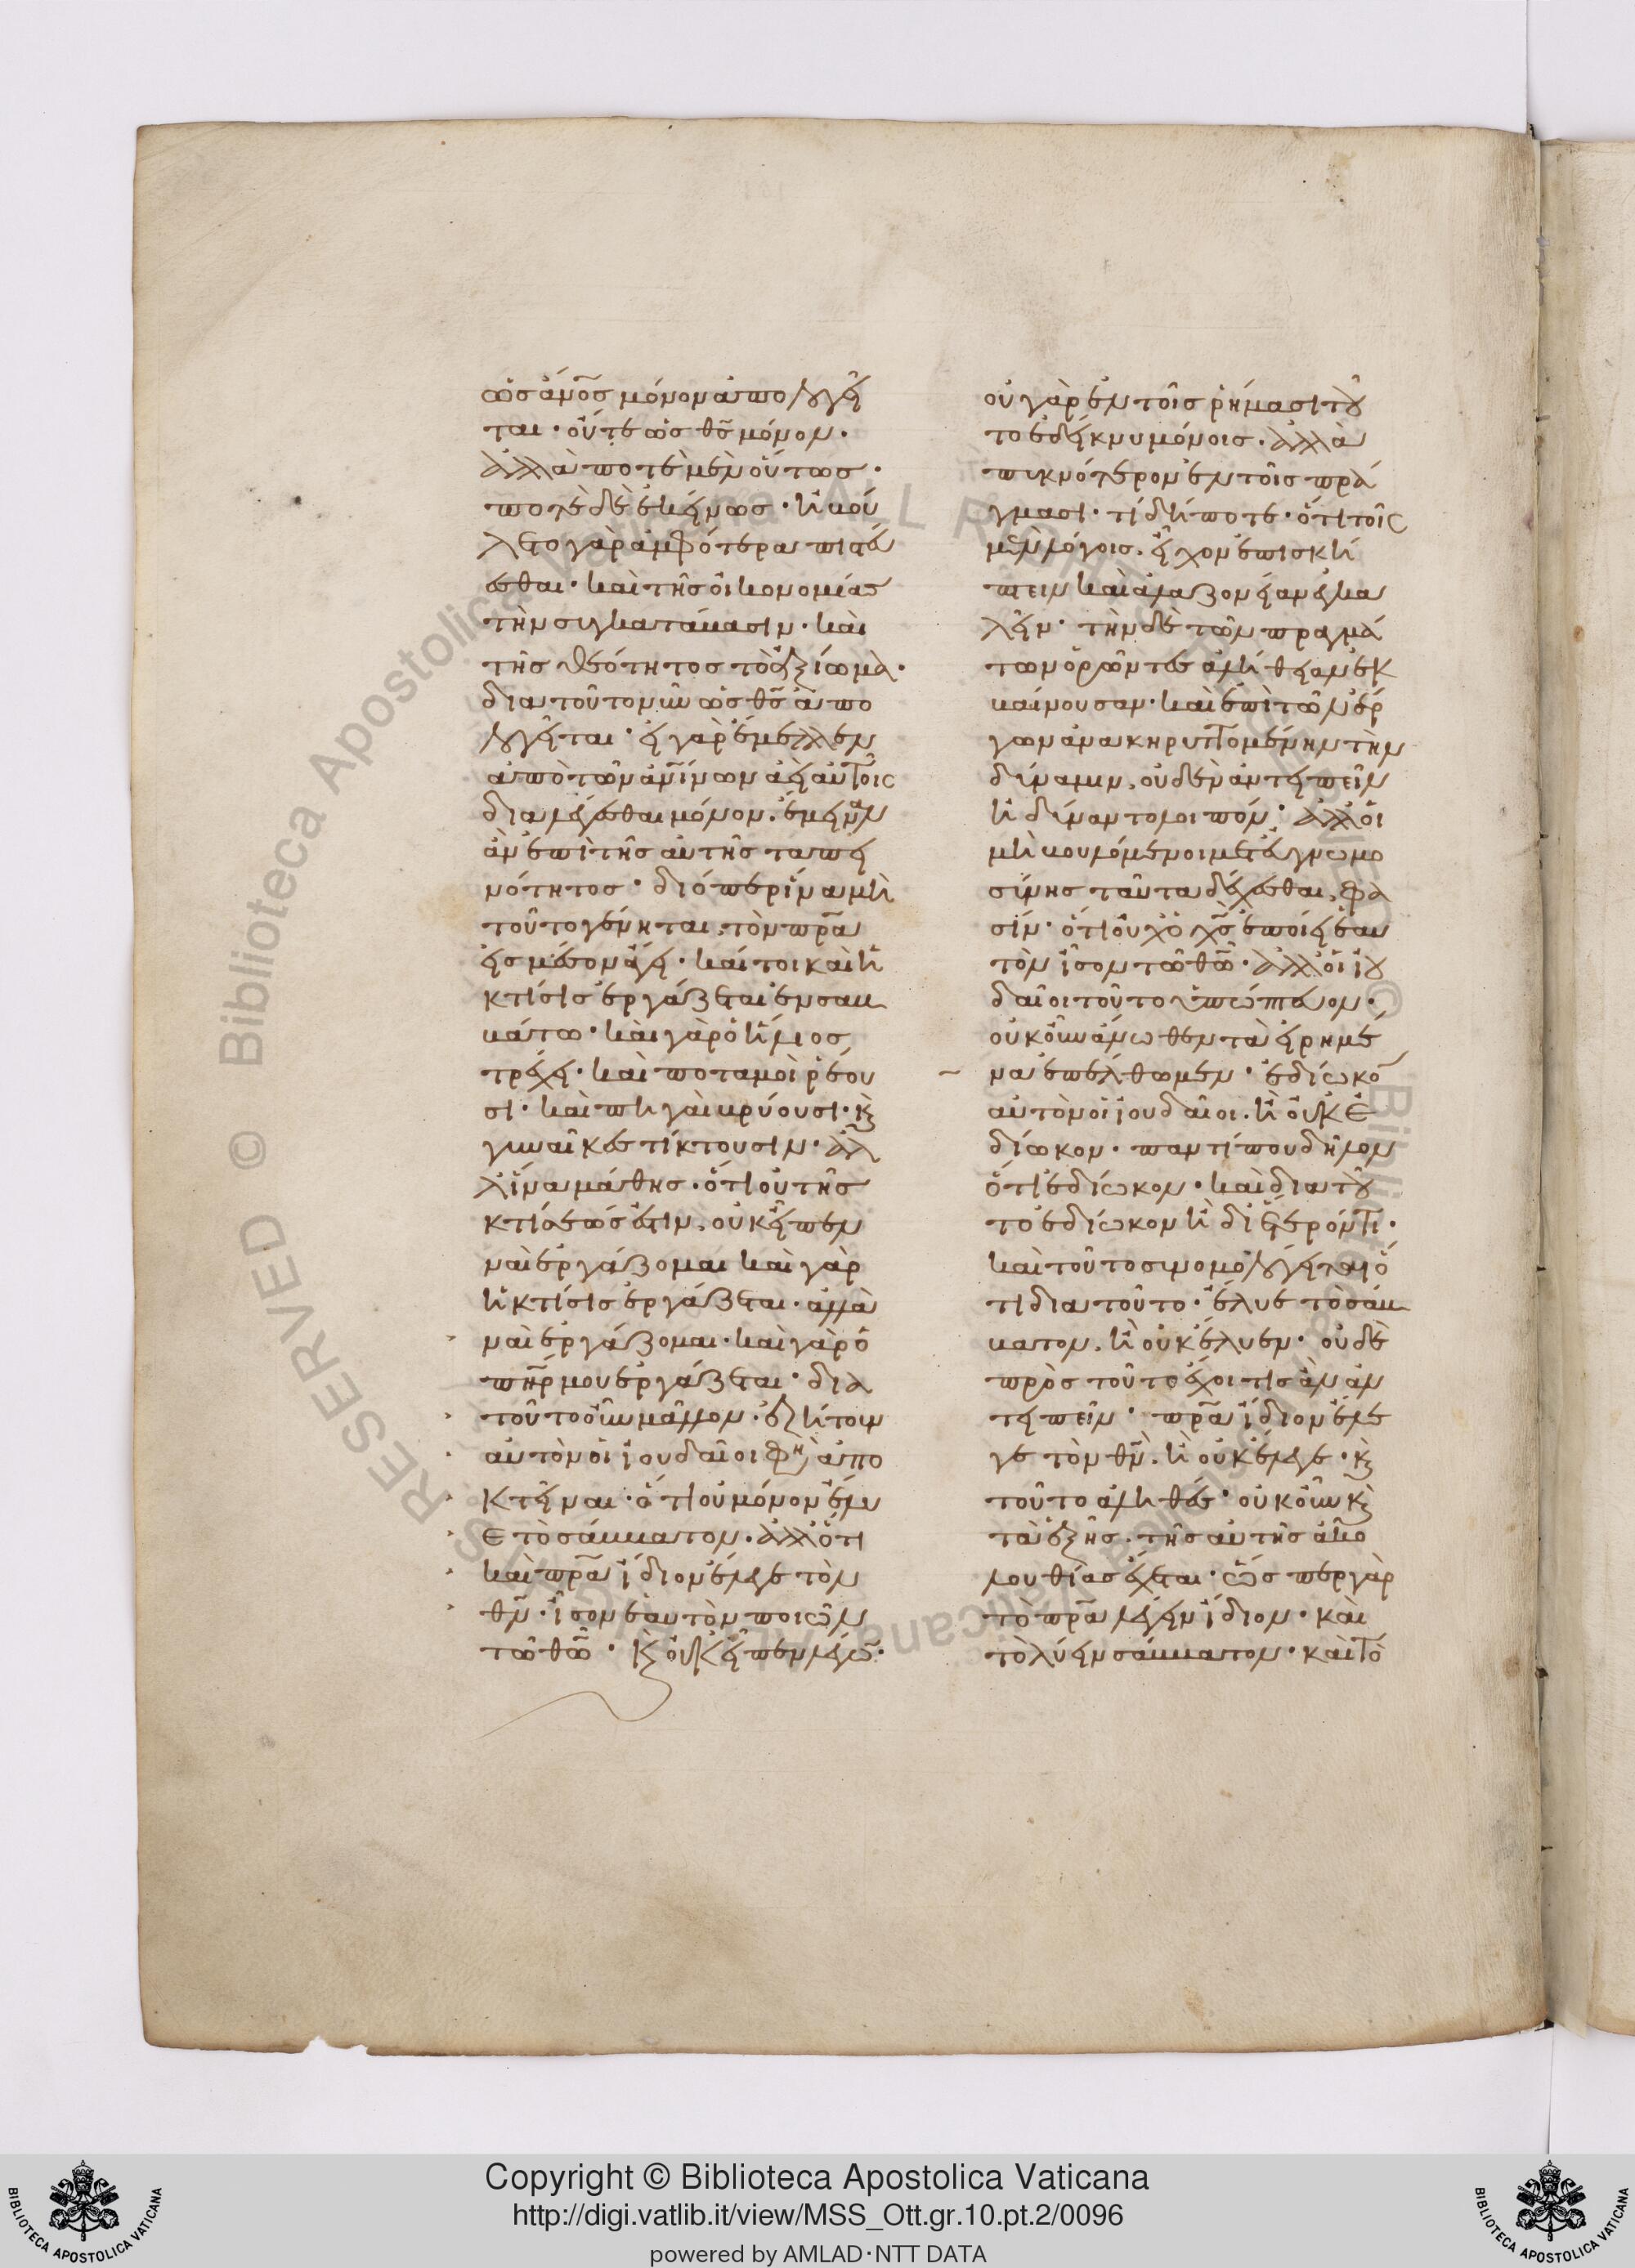 ὡς ἀνο̅ς μόνον ἀπολογεῖ
ται· οὔτε ὡς θς̅ μόνον·
ἀλλὰ ποτὲ μὲν οὕτως·
ποτὲ δὲ ἐκείνως· ἠβού
λετο γὰρ ἀμφότερα πιστεύ
εσθαι· καὶ τῆς οἰκονομίας
τὴν συγκατάβασιν· καὶ
τῆς θεότητος τὸ ἀξίωμα·
δια τοῦτο νῦν ὡς θς̅ ἀπο
λογεῖται· εἰ γὰρ ἔμελλεν
ἀπὸ τῶν ἀνίνων ἀεὶ αὐτοῖς
διαλέγεσθαι μόνον· ἔμειναν
ἂν ἐπὶ τῆς αὐτῆς ταπει
νότητος· διόπερ ἵνα μὴ
τοῦτο γένηται, τὸν πρα̅
εἰς μέσον ἄγει· καίτοι καὶ ἡ
κτίσις ἐργάζεται ἐν σαβ
βάτω· καὶ γὰρ ὁ ἥλιος
τρέχει· καὶ ποταμοὶ ῥέου
σι· καὶ πηγαὶ βρύουσι· κ̀
γυναῖκες τίκτουσιν· ἀλ
λ' ἵνα μάθης· ὅτι οὐ τῆς
κτίσεώς ἐστιν, οὐκ εἶπεν
ναὶ ἐργάζομαι καὶ γὰρ
ἡ κτίσις ἐργάζεται· ἀλλὰ
ναὶ ἐργάζομαι· καὶ γὰρ ὁ
πηρ̅ μου ἐργάζεται· δια
τοῦτο οὖν μᾶλλον· ἐζήτουν
αὐτὸν οἱ ἰουδαῖοι φη(σὶν) ἀπο
κτεῖναι· ὅτι οὐ μόνον ἔλυ
ε τὸ σάββατον· ἀλλ' ὅτι
καὶ πρα̅ ἴδιον ἔλεγε τὸν
θν̅· ἴσον ἑαυτὸν ποιῶν
τῶ θω̅· κ̀ οὐκ εἶπεν λέγων·
οὐ γὰρ ἐν τοῖς ῥήμασι τοῦ
το ἐδείκνυ μόνοις· ἀλλὰ
πυκνότερον ἐν τοῖς πρά
γμασι· τί δήποτε· ὅτι τοῖς
μὲν λόγοις, εἶχον ἐπισκή
πτειν καὶ ἀλαζονείαν ἐγκα
λεῖν· τὴν δὲ τῶν πραγμά
των ὁρῶντες ἀλήθειαν ἐκ
βαίνουσαν· καὶ ἐπὶ τῶν ἔρ
γων ἀνακηρυττομένην τὴν
δύναμιν, οὐδὲν ἀντειπεῖν
ἠδύναντο λοιπόν· ἀλλ' οἱ
μὴ βουλόμενοι μετ' εὐγνωμο
σύνης ταῦτα δέχεσθαι, φα
σίν· ὅτι οὐχ ὁ χς̅ ἐποίει ἑαυ
τὸν ἴσον τῶ θω̅· ἀλλ' οἱ ἰου
δαῖοι τοῦτο ὑπώπτευον·
οὐκοῦν ἄνωθεν τὰ εἰρημέ
να ἐπέλθωμεν· ἐδίωκον
αὐτὸν οἱ ἰουδαῖοι· ἢ οὐκ ἐ
δίωκον· παντί που δῆλον
ὅτι ἐδίωκον· καὶ διατοῦ
το ἐδίωκον ἢ δι' ἕτερόν τι·
καὶ τοῦτο συνομολογεῖται ὅ
τι δια τοῦτο· ἔλυε τὸ σάβ
βατον, ἢ οὐκ ἔλυεν· οὐδὲ
πρὸς τοῦτο ἔχοι τις ἂν ἀν
τειπεῖν· πρα̅ ἴδιον ἔλε
γε τὸν θν̅· ἢ οὐκ ἔλεγε· κ̀
τοῦτο ἀληθές· οὐκοῦν κ̀
τὰ ἑξῆς, τῆς αὐτῆς ἀκο
λουθίας ἔχεται· ὥσπερ γὰρ
τὸ πρα̅ λέγειν ἴδιον· καὶ
τὸ λύειν σάββατον· καὶ τὸ
Copyright © Biblioteca Apostolica Vaticana
http://digi.vatlib.it/view/MSS_Ott.gr.10.pt.2/0096
powered by AMLAD·NTT DATA